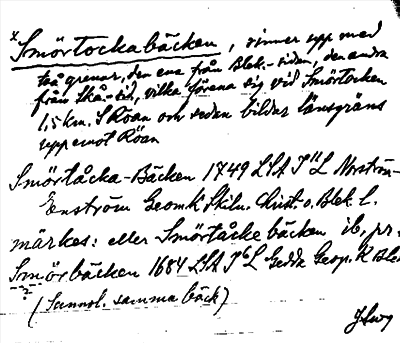 x Smörtockabäcken, rinner upp med
två grenar, den ena från Blek.-sidan, den andra
från Skå.-sid, vilka förena sig vid Smörtocken
1,5 km. S Röan och sedan bildar länsgräns
upp emot Röan
Smörtåcka-Bäcken 1749 LSA J"L Norström-
Enström Geom.k Skiln. Christ. o. Blek l.
märkes: eller Smörtåcke bäcken ib. pr.
Smörbäcken 1684 LSA J6L Gedda Geogr. K Blek
?
(Sannol. samma bäck)